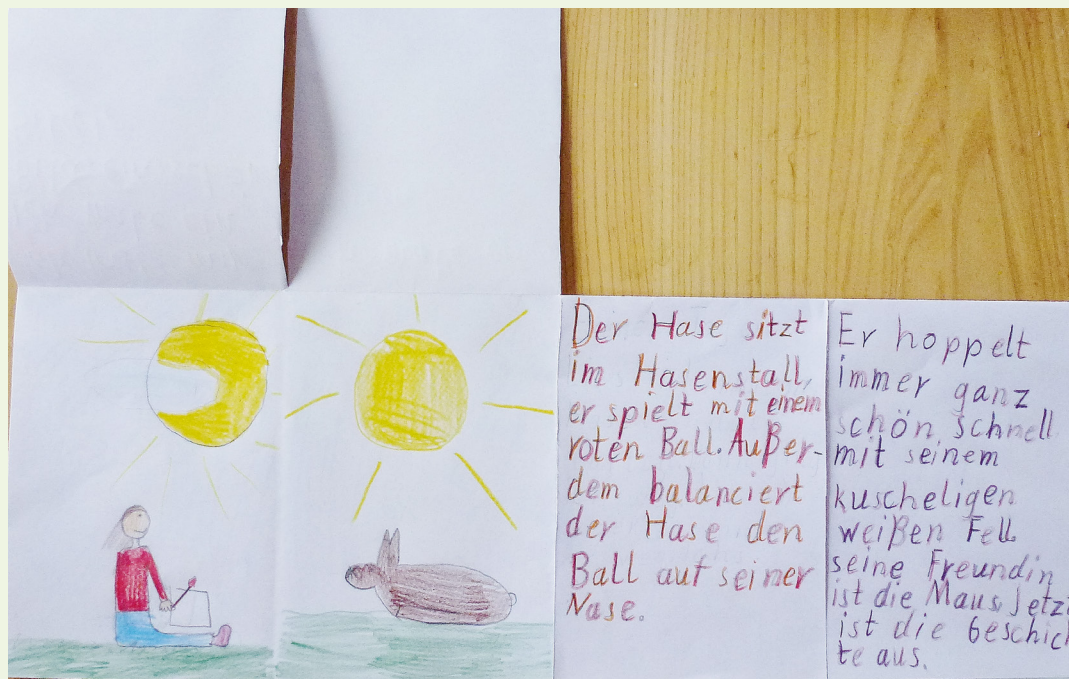 Der Hase sitzt
im Hasenstall,
er spielt mit einem
roten Ball. Außer-
dem balanciert
der Hase den
Ball auf seiner
Nase.
Er hoppelt
immer ganz
schön schnell
mit seinem
kuscheligen
weißen Fell.
seine Freundin
ist die Maus. Jetzt
ist die Geschich
te aus.